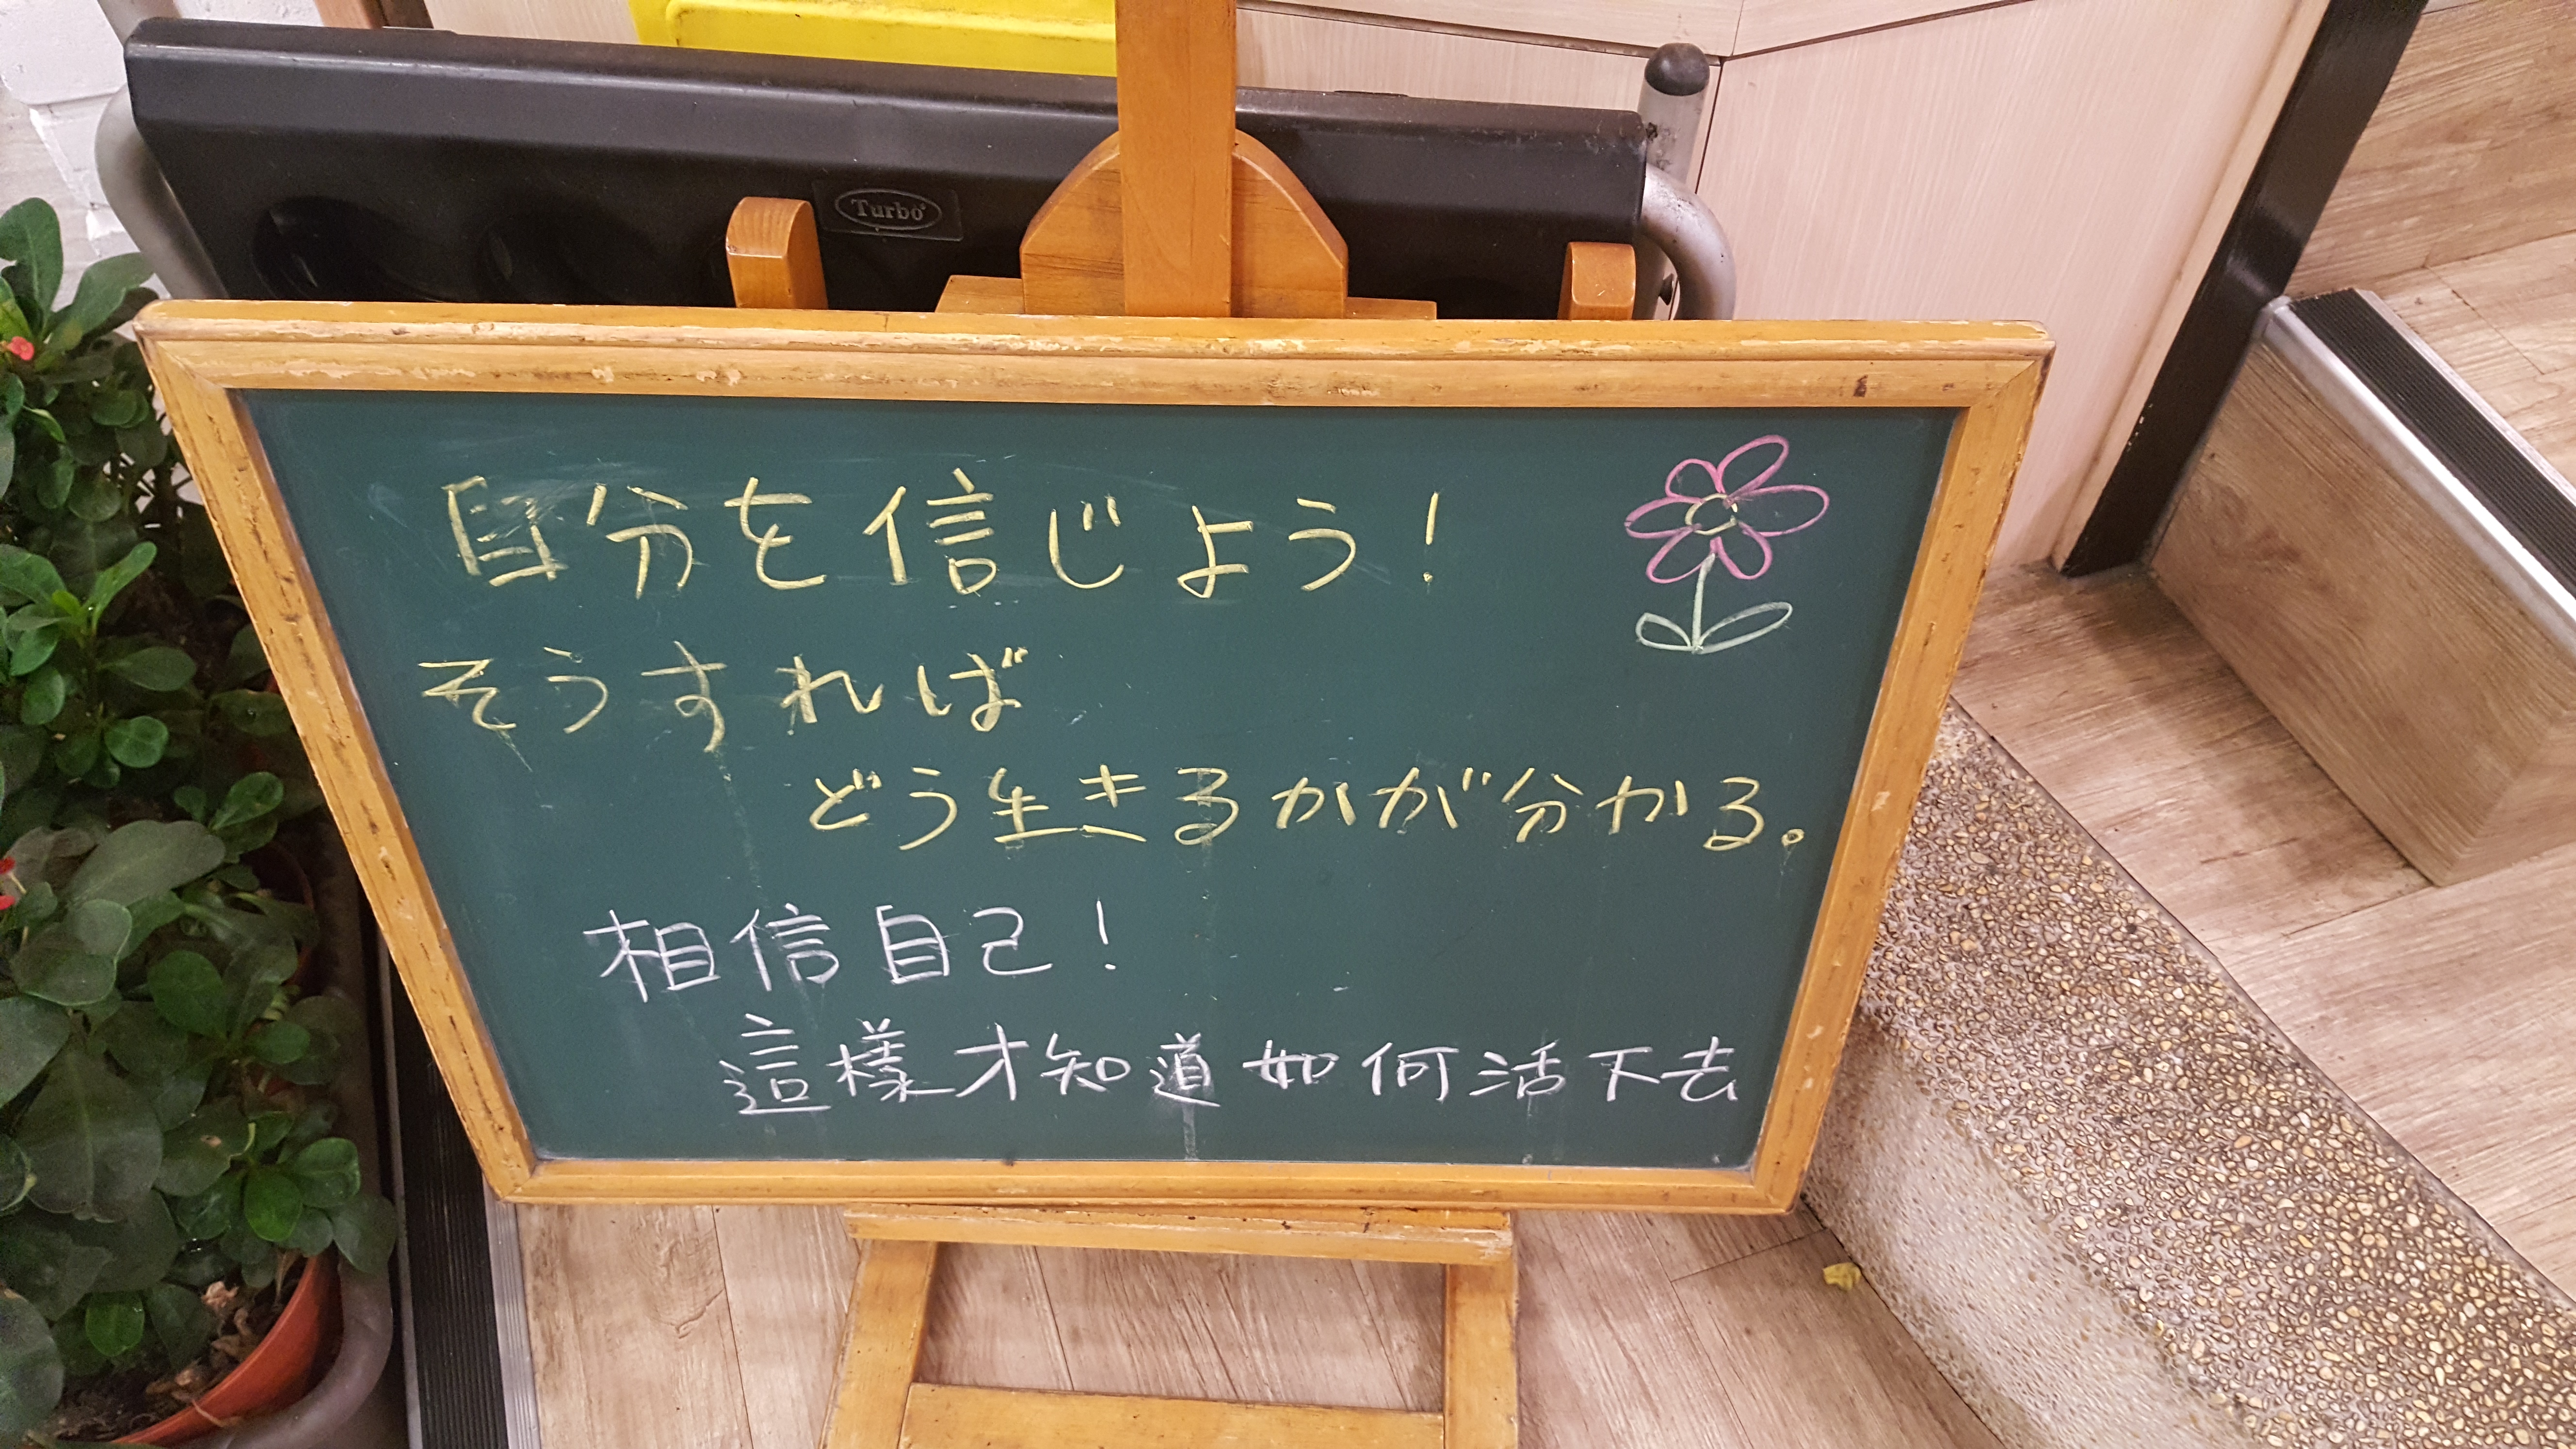 Turbo
自分を信じよう!
そうすれば
どう生きるかが分かる。
相信自己!
這樣才知道如何活下去